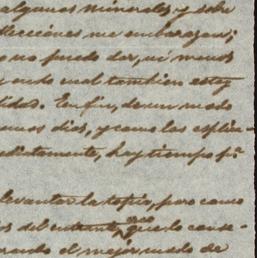 algunos minerales y sobre
elecciones me embarazan;
o no puedo dar, ni menos
y esto cual tambien estoy
didas. En fin, de un modo
amos dias, y como las esplica-
ediatamente, hay tiempo pa.
levantar la tapia, pero como
os del entrante, creo que lo conse-
rando el mejor modo de